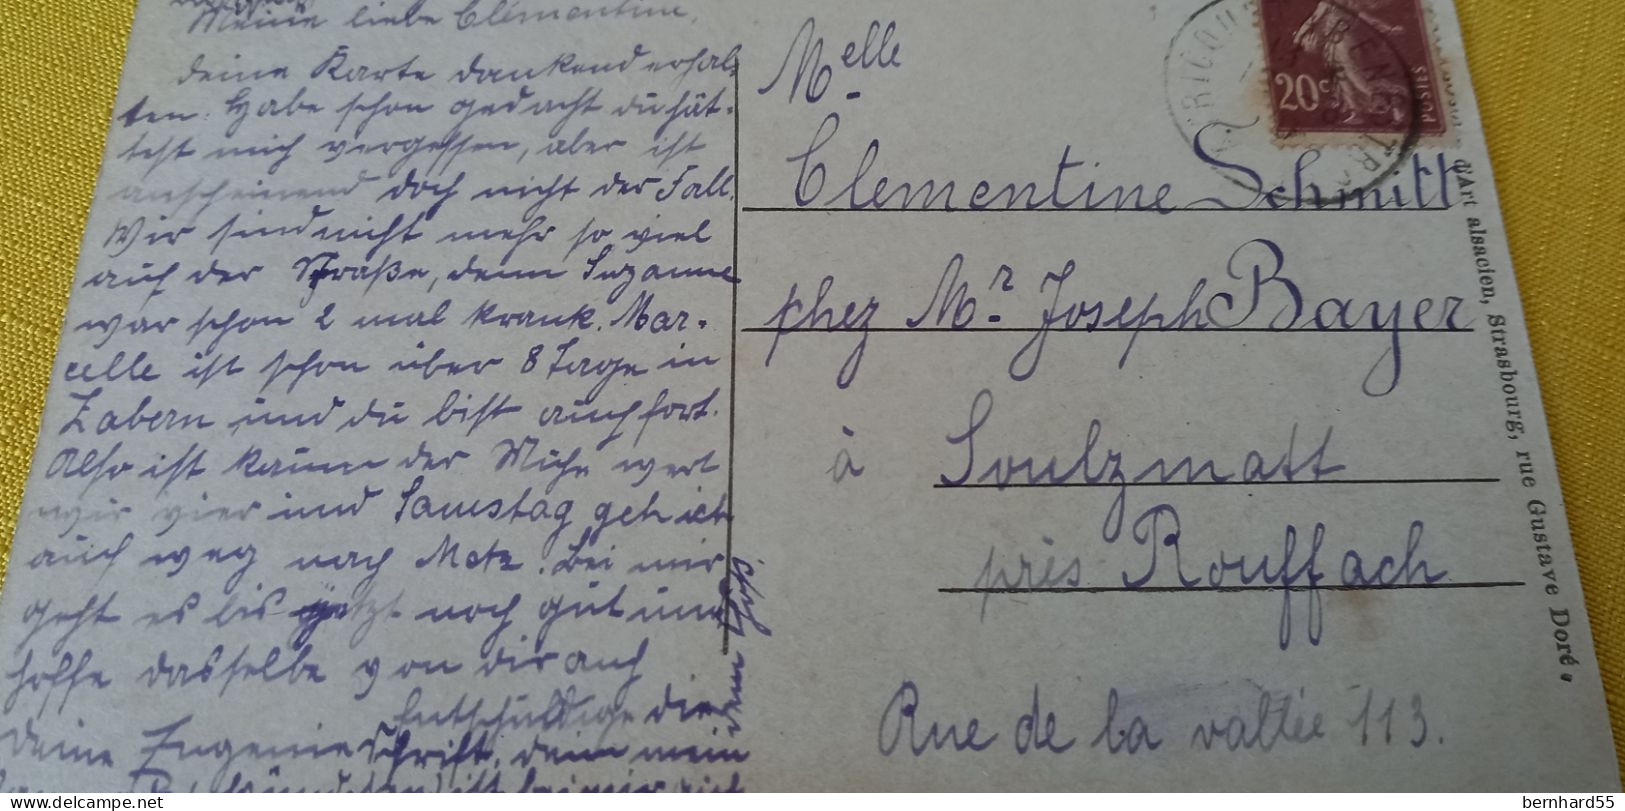 Meine liebe Clementine,
deine Karte dankend erhal-
ten. Habe schon gedacht du hät-
test mich vergessen, aber ist
anscheinend doch nicht der Fall.
Wir sind nicht mehr so viel
auf der Straße, denn Suzanne
war schon 2 mal krank. Mar-
celle ist schon über 8 Tage in
Zabern und du bist auch fort.
Also ist kaum der Mühe wert
wir vier und Samstag geh ich
auch weg nach Metz. Bei mir
geht es bis jetzt noch gut und
hoffe dasselbe von dir auch
deine Eugenie
Entschuldige die
Schrift, denn mein
Melle
Clementine Schmitt
chez Mr. Joseph Bayer
à Soulzmatt
près Rouffach
Rue de la vallée 113.
20c
POSTES
d'Art alsacien, Strasbourg, rue Gustave Doré
bernhard55